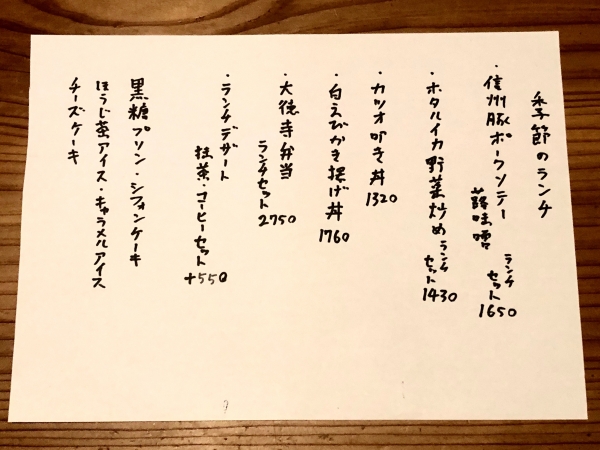 季節のランチ
・信州豚ポークソテー
蕗味噌
ランチ
セット
1650
・ホタルイカ野菜炒め
ランチ
セット
1430
・カツオ叩き丼
1320
・白えびかき揚げ丼
1760
・大徳寺弁当
ランチセット
2750
・ランチデザート
抹茶・コーヒーセット
+550
黒糖プリン・シフォンケーキ
ほうじ茶アイス・キャラメルアイス
チーズケーキ